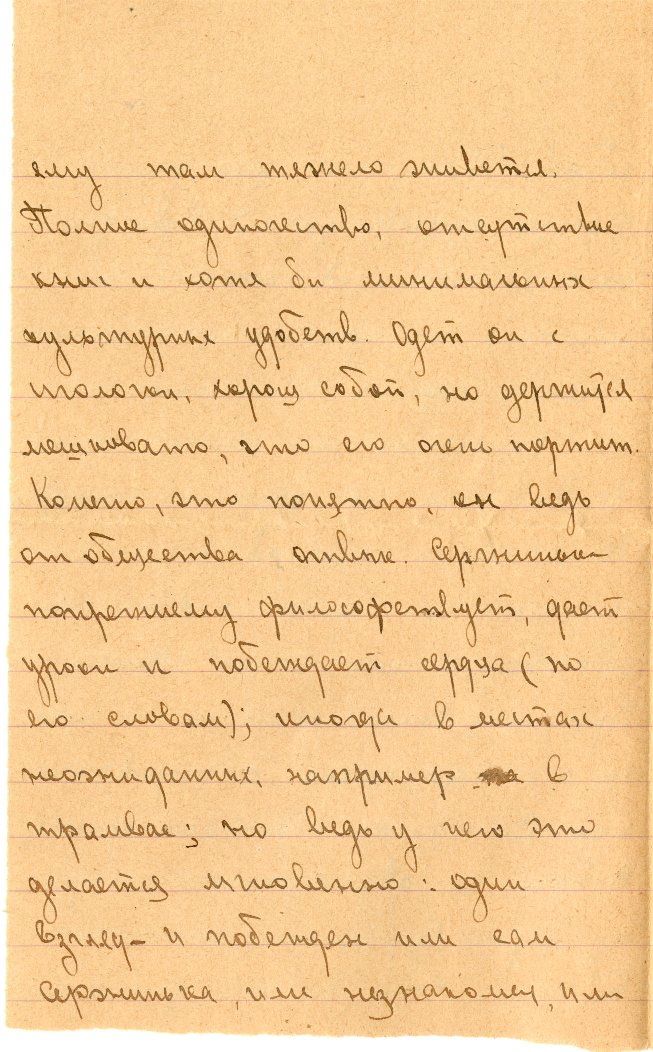 ему там тяжело живется.
Полное одиночество, отсутствие
книг и хотя бы минимальных
культурных удобств. Одет он с
иголочки, хорош собой, но держится
мешковато, это его очень портит.
Конечно, это понятно, он ведь
от общества отвык. Сержинька
попрежнему философствует, дает
уроки и побеждает сердца (по
его словам); иногда в местах
неожиданных, например в
трамвае; но ведь у него это
делается мгновенно: один
взгляд - и побежден или сам
Сержинька, или незнакомец, или